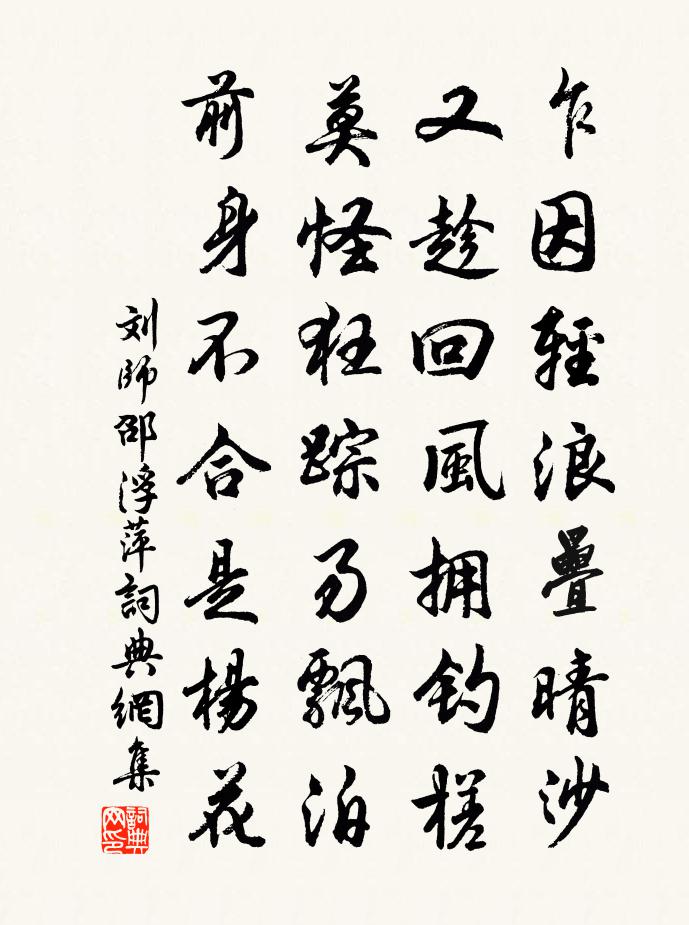 乍因輕浪疊晴沙
又趁回風拥钓槎
莫怪狂踪易飘泊
前身不合是楊花
刘師邵浮萍詞典網集
詞典网印